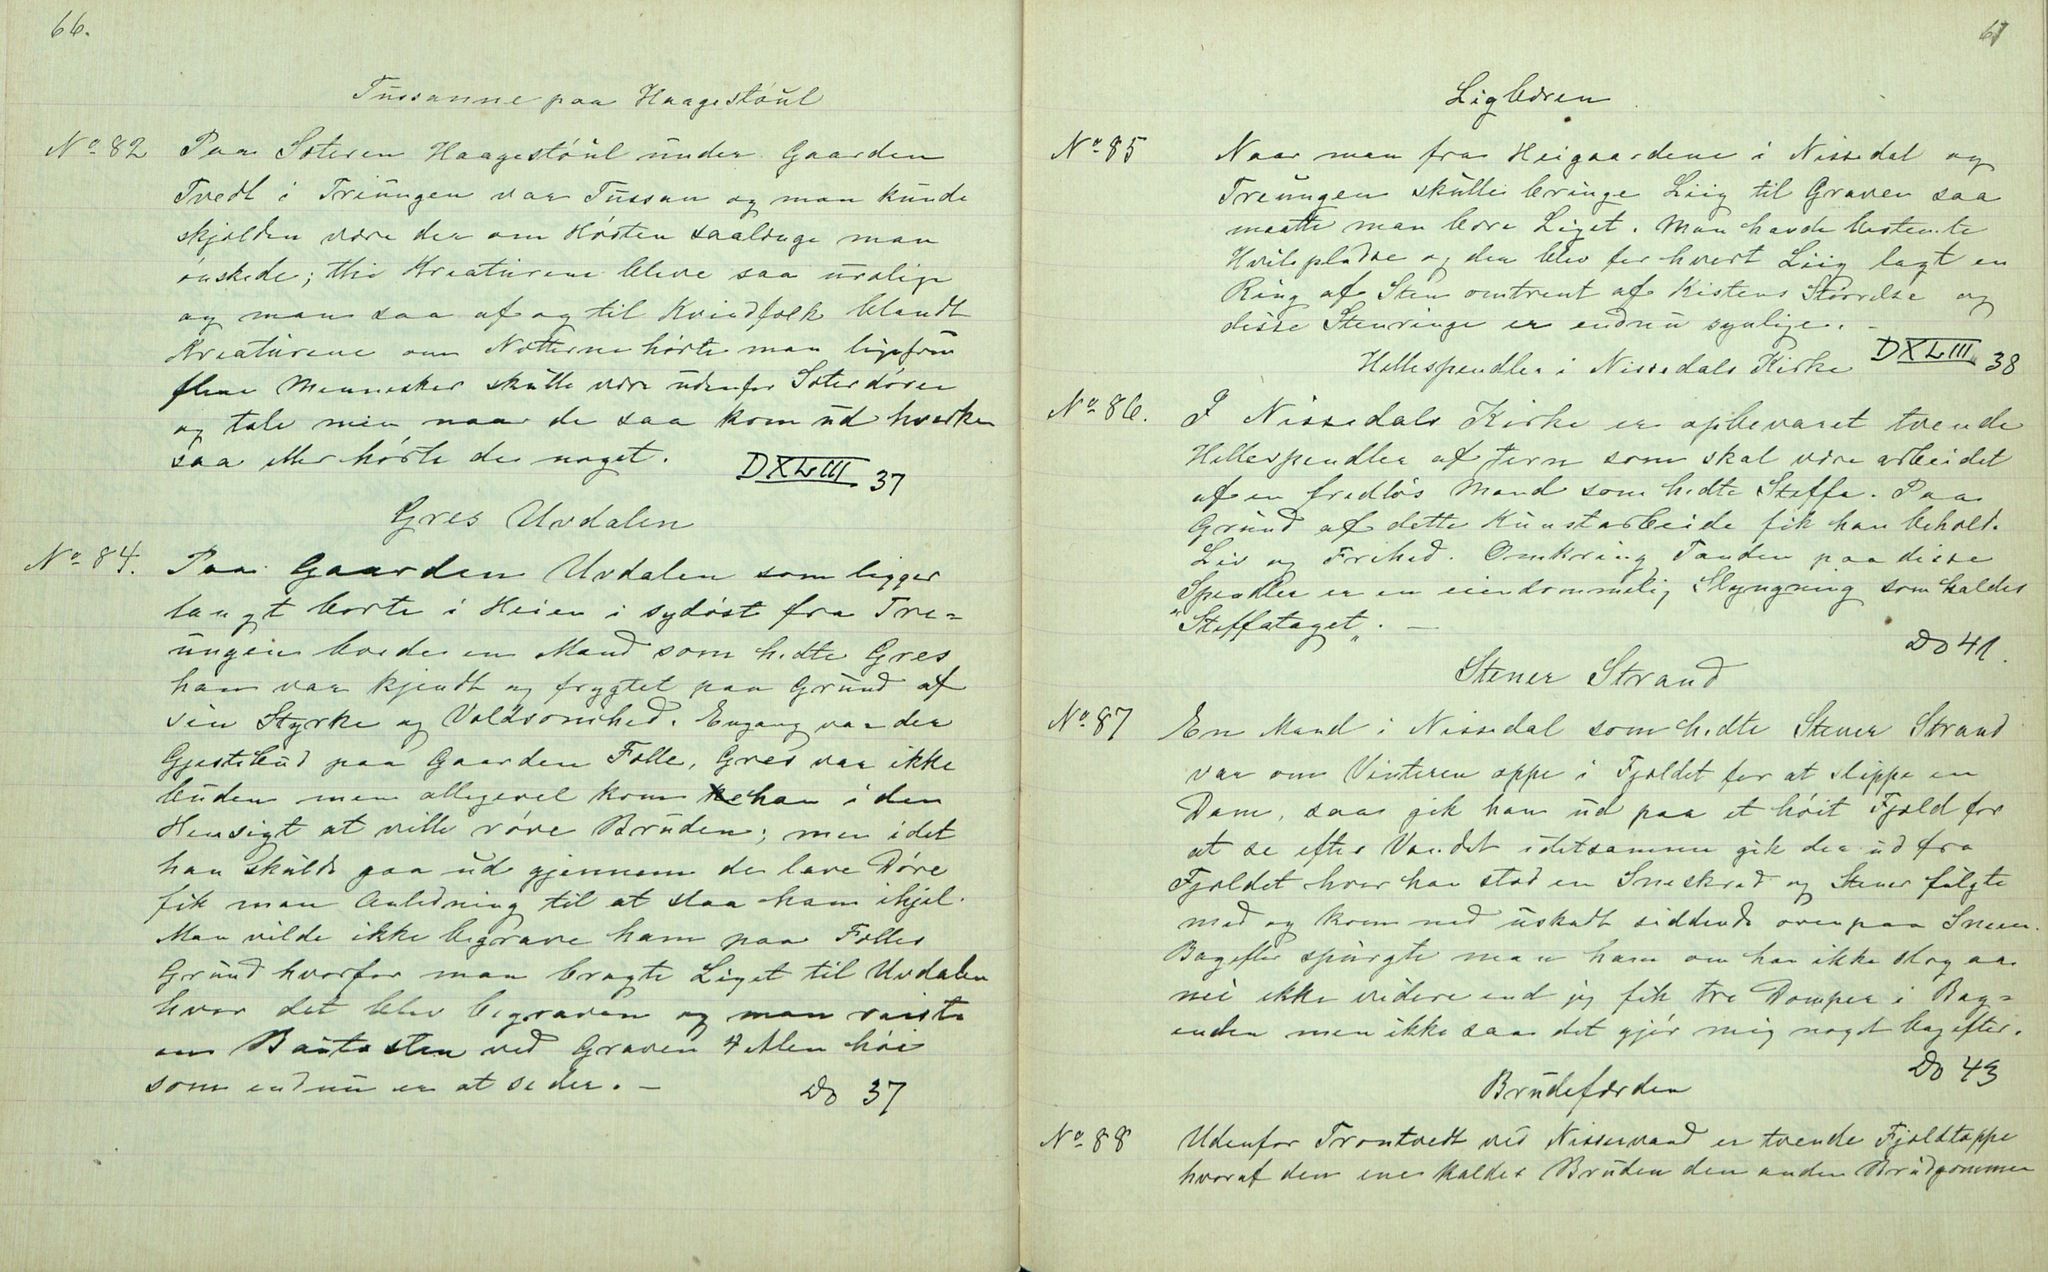 66.
Tussanne paa Haagestóul
No 82 Paa Sæteren Haagestóul under Gaarden
Tvedt i Triungen var Tussan og man kunde
skjælden være der om Hösten saalænge man
önskede; thi Kreaturene bleve saa urolige
og man saa af og til Kvindfolk blandt
Kreaturene om Nætterne hörte man ligefrem
flere Mennesker skulle være udenfor Sæterdören
og tale men naar de saa kom ud hverken
saa eller hörte de noget.
DXLIII 37
Gres Uvdalen
No 84. Paa Gaarden Uvdalen som ligger
langt borte i Heien i sydöst fra Tre-
ungen boede en Mand som hedte Gres
han var kjendt og frygtet paa Grund af
sin Styrke og Voldsomhed. Engang var der
Gjestebud paa Gaarden Folle, Gres var ikke
buden men alligevel kom han i den
Hensigt at ville röve Bruden; men idet
han skulde gaa ud gjennem de lave Döre
fik man Anledning til at slaa ham ihjel.
Man vilde ikke begrave ham paa Folles
Grund hvorfor man bragte Liget til Uvdalen
hvor det blev begraven og man reiste
en Bautasten ved Graven 4 Alen höi
som endnu er at se der. –
Do 37
67
Ligbæren
No 85 Naar man fra Heigaardene i Nissedal og
Treungen skulle bringe Liig til Graven saa
maatte man bære Liget. Man havde bestemte
Hvilepladse og der blev for hvert Liig lagt en
Ring af Sten omtrent af Kistens Störrelse og
disse Stenringe er endnu synlige. –
DXLIII 38
Hellespendler i Nissedals Kirke
No 86. I Nissedals Kirke er opbevaret tvende
Hellespendler af Jern som skal være arbeidet
af en fredlös Mand som hedte Steffa. Paa
Grund af dette Kunstarbeide fik han beholde
Liv og Frihed. Omkring Tanden paa disse
Spendler er en eiendommelig Slyngning som kaldes
"Steffataget". –
Do 41.
Stener Strand
No 87 En Mand i Nissedal som hedte Stener Strand
var om Vinteren oppe i Fjeldet for at slippe en
Dam, saa gik han ud paa et höit Fjeld for
at se efter Vandet idetsamme gik der ud fra
Fjeldet hvor han stod en Sneskred og Stener fulgte
med og kom ned uskadt siddende ovenpaa Sneen.
Bagefter spurgte man ham om han ikke slog sa
nei ikke videre end jeg fik tre Domper i Bag-
enden men ikke saa det gjör mig noget bagefter.
Do 43
Brudefærden
No 88 Udenfor Trontvedt ved Nisservand er tvende Fjeldtoppe
hvoraf den ene kaldes Bruden den anden Brudgommen